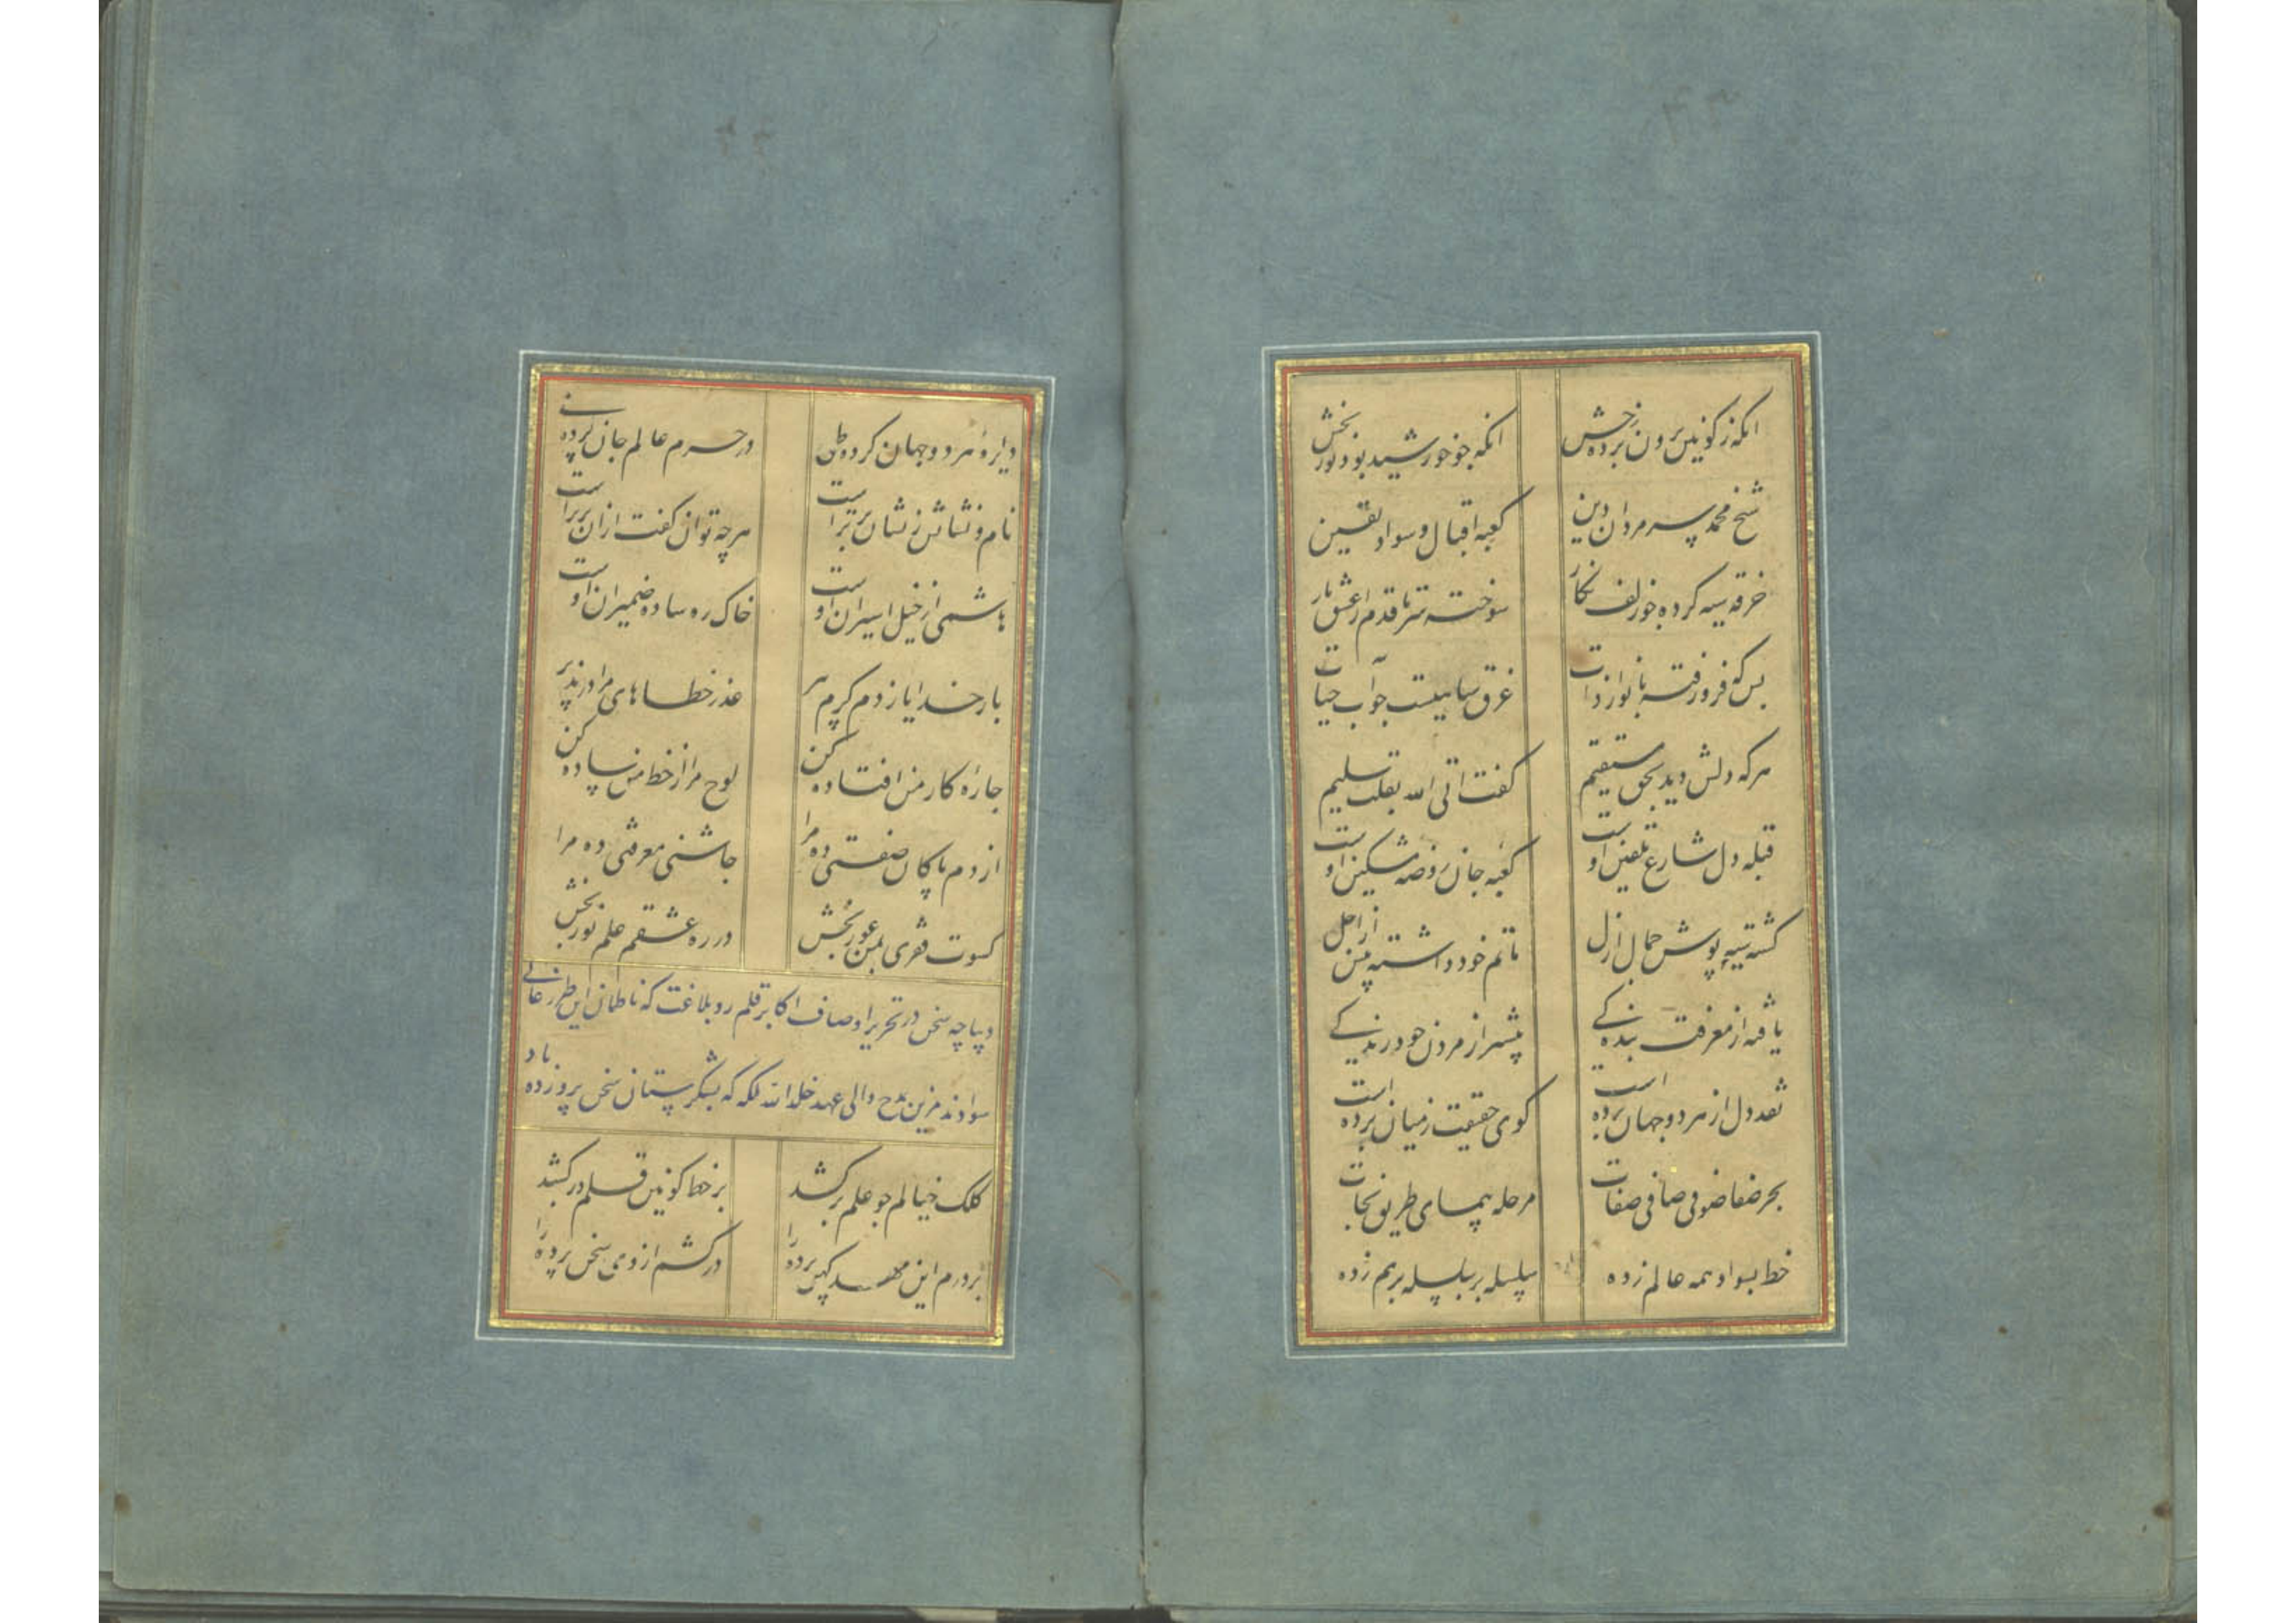 آنکه ز کونین برون برده رخش
آنکه چو خورشید بود نور بخش
شیخ محمد سر مردان دین
کعبه اقبال و سواد یقین
خرقه سیه کرده چو زلف نگار
سوخته سر تا قدم از عشق یار
بس که فرو رفته بانوار ذات
غرق سیاهیست چو آب حیات
هر که دلش دید بحق مستقیم
گفت اتی الله بقلب سلیم
قبله دل شارع تلقین اوست
کعبه جان روضه مشکین اوست
کشته سیه پوش جمال ازل
ماتم خود داشته پیش از اجل
یافته از معرفت بندکی
پیشتر از مردن خود زندکی
نقد دل از هر دو جهان برده است
کوی حقیقت ز میان برده است
بحر صفا صوفی صافی صفات
مرحله پیمای طریق نجات
خط بسواد همه عالم زده
سلسله بر سلسله بر هم زده
دایره هر دو جهان کرده طی
در حرم عالم جان کرده پی
نام و نشانش ز نشان برتر است
هر چه توان گفت ازان برتر است
هاشمی از خیل اسیران اوست
خاک ره ساده ضمیران اوست
بار خدایا ز دم کرم پیر
عذر خطاهای مرا در پذیر
چاره کار من افتاده کن
لوح مرا از خط من ساده کن
از دم پاکان صفتی ده مرا
چاشنی معرفتی ده مرا
کسوت فقری بمن عور بخش
در ره عشقم علم نور بخش
دیباچه سخن در تحریر اوصاف اکابر قلم رو بلاغت که ناظمان این طرز
سوادند مزین بمدح والی عهد خلد الله ملکه که شکرستان سخن پرورده باد
کلک خیالم چو علم بر کشد
بر خط کونین قلم در کشد
بر درم این مهد کهن پرده را
در کشم از روی سخن پرده را